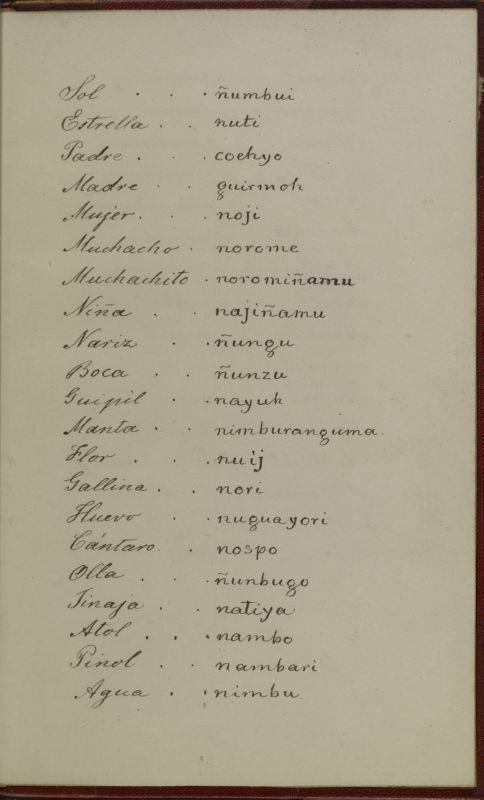 Sol . . . ñumbui
Estrella . . nuti
Padre . . . coehyo
Madre . . guirmoh
Mujer . . . noji
Muchacho . norome
Muchachito . noromiñamu
Niña . . najiñamu
Nariz . . ñungu
Boca . . ñunzu
Guipil . . nayuh
Manta . . nimburanguma.
Flor . . . nuij
Gallina . . nori
Huevo . . nuguayori
Cántaro . nospo
Olla . . ñunbugo
Tinaja . . natiya
Atol . . . nambo
Pinol . . nambari
Agua . . nimbu.